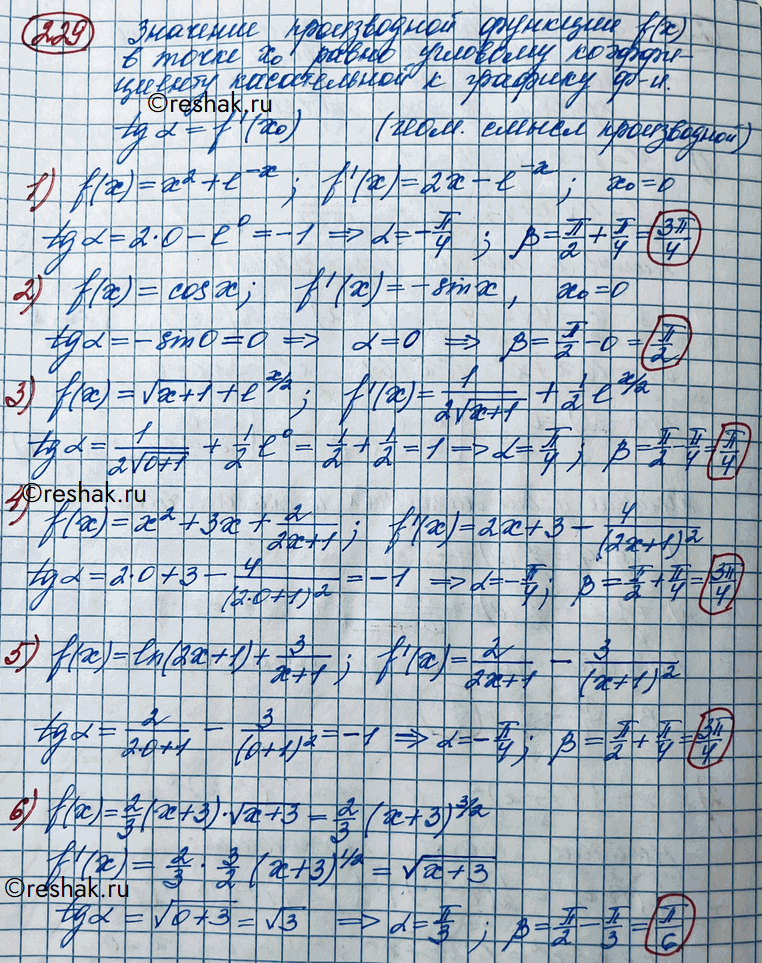 229 Значение производной функции f(x)
в точке x₀ равно угловому коэффи-
циенту касательной к графику ф-и.
©reshak.ru
tg α = f'(x₀) (геом. смысл производной)
1) f(x) = x² + e^(-x); f'(x) = 2x - e^(-x); x₀ = 0
tg α = 2·0 - e⁰ = -1 ⇒ α = -π/4; β = π/2 + π/4 = 3π/4
2) f(x) = cos x; f'(x) = -sin x, x₀ = 0
tg α = -sin 0 = 0 ⇒ α = 0 ⇒ β = π/2 - 0 = π/2
3) f(x) = √(x+1) + e^(x/2); f'(x) = 1/(2√(x+1)) + 1/2 e^(x/2)
tg α = 1/(2√(0+1)) + 1/2 e⁰ = 1/2 + 1/2 = 1 ⇒ α = π/4; β = π/2 - π/4 = π/4
©reshak.ru
4) f(x) = x² + 3x + 2/(2x+1); f'(x) = 2x + 3 - 4/(2x+1)²
tg α = 2·0 + 3 - 4/(2·0+1)² = -1 ⇒ α = -π/4; β = π/2 + π/4 = 3π/4
5) f(x) = ln(2x+1) + 3/(x+1); f'(x) = 2/(2x+1) - 3/(x+1)²
tg α = 2/(2·0+1) - 3/(0+1)² = -1 ⇒ α = -π/4; β = π/2 + π/4 = 3π/4
6) f(x) = 2/3 (x+3)·√(x+3) = 2/3 (x+3)^(3/2)
f'(x) = 2/3 · 3/2 (x+3)^(1/2) = √(x+3)
©reshak.ru
tg α = √(0+3) = √3 ⇒ α = π/3; β = π/2 - π/3 = π/6